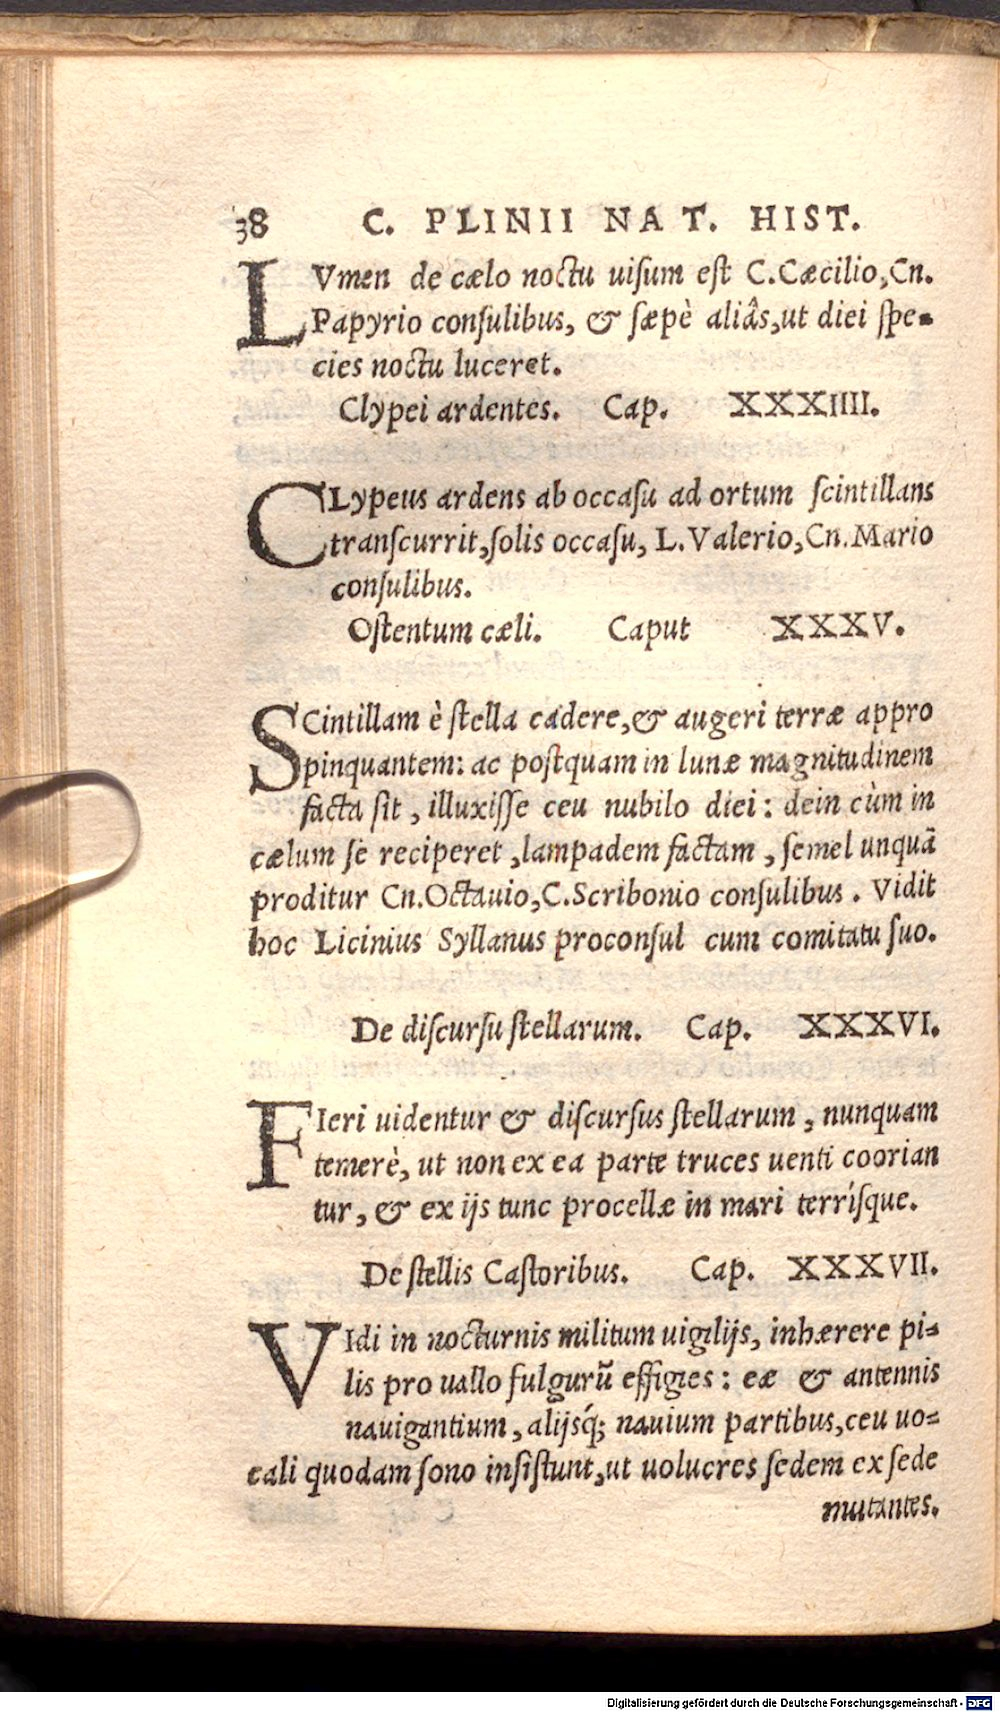 38 C. PLINII NAT. HIST.
LVmen de cælo noctu uisum est C.Cæcilio,Cn.
Papyrio consulibus, & sæpè aliâs,ut diei spe-
cies noctu luceret.
Clypei ardentes. Cap. XXXIIII.
CLypeus ardens ab occasu ad ortum scintillans
transcurrit,solis occasu, L.Valerio,Cn.Mario
consulibus.
Ostentum cæli. Caput XXXV.
SCintillam è stella cadere,& augeri terræ appro
pinquantem: ac postquam in lunæ magnitudinem
facta sit, illuxisse ceu nubilo diei: dein cùm in
cælum se reciperet,lampadem factam, semel unquã
proditur Cn.Octauio,C.Scribonio consulibus. Vidit
hoc Licinius Syllanus proconsul cum comitatu suo.
De discursu stellarum. Cap. XXXVI.
FIeri uidentur & discursus stellarum, nunquam
temerè, ut non ex ea parte truces uenti coorian
tur, & ex ijs tunc procellæ in mari terrísque.
De stellis Castoribus. Cap. XXXVII.
VIdi in nocturnis militum uigilijs, inhærere pi-
lis pro uallo fulgurũ effigies: eæ & antennis
nauigantium, alijsq́; nauium partibus,ceu uo-
cali quodam sono insistunt,ut uolucres sedem ex sede
mutantes.
Digitalisierung gefördert durch die Deutsche Forschungsgemeinschaft - DFG